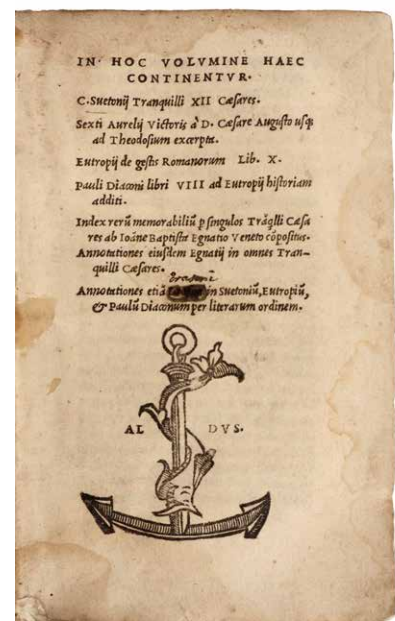 IN HOC VOLVMINE HAEC
CONTINENTVR.
C. Suetonij Tranquilli XII Cæsares.
Sexti Aurelij Victoris à D. Cæsare Augusto usq;
ad Theodosium excerpta.
Eutropij de gestis Romanorum Lib. X.
Pauli Diaconi libri VIII ad Eutropij historiam
additi.
Index rerū memorabiliū p singulos Trãqlli Cæsa
res ab Ioāne Baptista Egnatio Veneto cōpositus.
Annotationes eiusdem Egnatij in omnes Tran-
quilli Cæsares.
Annotationes etiā in Suetoniū, Eutropiū,
& Paulū Diaconum per literarum ordinem.
AL DVS.